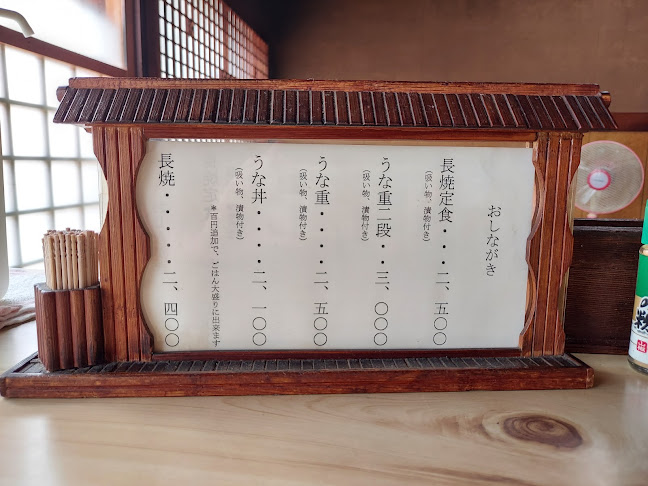 おしながき
長焼定食・・・二、五〇〇
(吸い物、漬物付き)
うな重二段・・三、〇〇〇
(吸い物、漬物付き)
うな重・・・・・二、五〇〇
(吸い物、漬物付き)
うな丼・・・・・二、一〇〇
(吸い物、漬物付き)
*百円追加で、ごはん大盛りに出来ます
長焼・・・・・・二、四〇〇